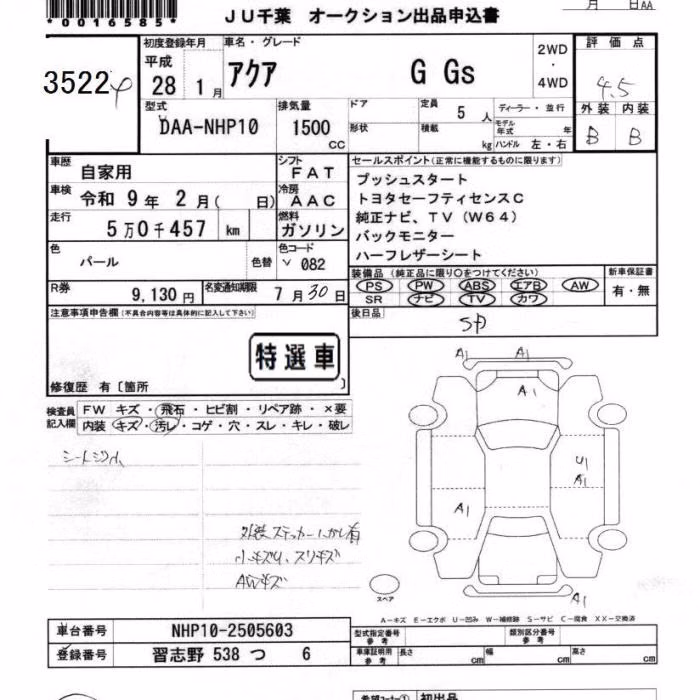 *0016585*
JU千葉 オークション出品申込書
月 日AA
3522
初度登録年月
平成
28 1月
車名・グレード
アクア G Gs
2WD
・
4WD
評価点
4.5
外装 内装
B B
型式
DAA-NHP10
排気量
1500
CC
ドア
形状
定員 5 人
積載 kg
ディーラー・並行
モデル年式 年
ハンドル 左・右
車歴
自家用
シフト
FAT
車検
令和 9年 2月( 日)
冷房
AAC
走行
5万0千457 km
燃料
ガソリン
色
パール
色替
色コード
082
R券
9,130円
名変通知期限
7月30日
セールスポイント(正常に機能するものに限ります)
プッシュスタート
トヨタセーフティセンスC
純正ナビ、TV(W64)
バックモニター
ハーフレザーシート
装備品(純正品に限り○をつけてください)
PS PW ABS エアB AW
SR ナビ TV カワ
新車保証書
有・無
後日品
SP
注意事項申告欄(不具合内容等は具体的に記入して下さい)
特選車
修復歴 有〔箇所 〕
検査員
記入欄
FW キズ・飛石・ヒビ割・リペア跡・×要
内装 キズ・汚レ・コゲ・穴・スレ・キレ・破レ
外装ステッカーハガし有
小キズU、スリキズ
AWキズ
A1 A1
A1
U1
A1
A1
A1
スペア
A-キズ E-エクボ U-凹み W-補修跡 S-サビ C-腐食 XX-交換済
車台番号 NHP10-2505603
登録番号 習志野 538 つ 6
型式指定番号
参考
類別区分番号
参考
車庫証明用
参考
長さ cm 幅 cm 高さ cm
希望コーナー① 初出品